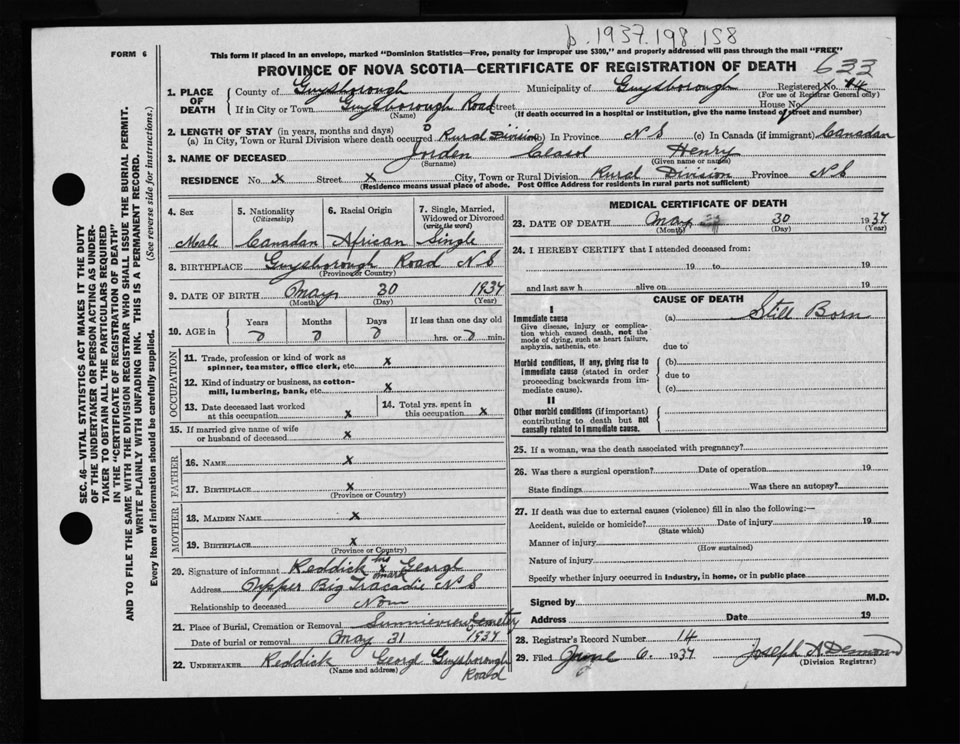 p. 1937.198 158
FORM 6
This form if placed in an envelope, marked "Dominion Statistics—Free, penalty for improper use $300," and properly addressed will pass through the mail "FREE"
PROVINCE OF NOVA SCOTIA—CERTIFICATE OF REGISTRATION OF DEATH
633
1. PLACE OF DEATH
County of Guysborough Municipality of Guysborough Registered No. 14
(For use of Registrar General only)
If in City or Town Guysborough Road Street House No.
(Name) (If death occurred in a hospital or institution, give the name instead of street and number)
2. LENGTH OF STAY (in years, months and days)
(a) In City, Town or Rural Division where death occurred 0 Rural Division (b) In Province N S (c) In Canada (if immigrant) Canadan
3. NAME OF DECEASED Jorden Henry
(Surname) (Given name or names)
RESIDENCE No. x Street x City, Town or Rural Division Rural Division Province N S
(Residence means usual place of abode. Post Office Address for residents in rural parts not sufficient)
4. Sex
Male
5. Nationality
(Citizenship)
Canadan
6. Racial Origin
African
7. Single, Married, Widowed or Divorced
(write the word)
Single
8. BIRTHPLACE Guysborough Road N S
(Province or Country)
9. DATE OF BIRTH May 30 1937
(Month) (Day) (Year)
10. AGE in
Years Months Days If less than one day old
0 0 0 hrs. or 0 min.
OCCUPATION
11. Trade, profession or kind of work as spinner, teamster, office clerk, etc. x
12. Kind of industry or business, as cotton-mill, lumbering, bank, etc. x
13. Date deceased last worked at this occupation x
14. Total yrs. spent in this occupation x
15. If married give name of wife or husband of deceased x
FATHER
16. NAME x
17. BIRTHPLACE x
(Province or Country)
MOTHER
18. MAIDEN NAME x
19. BIRTHPLACE x
(Province or Country)
20. Signature of informant Reddick his x mark Georgh
Address Opper Big Tracadie N S
Relationship to deceased Non
21. Place of Burial, Cremation or Removal Sunnieview Cemetery
Date of burial or removal May 31 1937
22. UNDERTAKER Reddick Georg Guysborough Roald
(Name and address)
MEDICAL CERTIFICATE OF DEATH
23. DATE OF DEATH May 30 1937
(Month) (Day) (Year)
24. I HEREBY CERTIFY that I attended deceased from:
19 to 19
and last saw h alive on 19
CAUSE OF DEATH
I
Immediate cause
Give disease, injury or complication which caused death, not the mode of dying, such as heart failure, asphyxia, asthenia, etc.
(a) Still Born
due to
Morbid conditions, if any, giving rise to immediate cause (stated in order proceeding backwards from immediate cause).
(b)
due to
(c)
II
Other morbid conditions (if important) contributing to death but not causally related to immediate cause.
25. If a woman, was the death associated with pregnancy?
26. Was there a surgical operation? Date of operation 19
State findings Was there an autopsy?
27. If death was due to external causes (violence) fill in also the following:—
Accident, suicide or homicide? Date of injury 19
(State which)
Manner of injury
(How sustained)
Nature of injury
Specify whether injury occurred in industry, in home, or in public place
Signed by M.D.
Address Date 19
28. Registrar's Record Number 14
29. Filed June 6. 1937 Joseph A. Desmond
(Division Registrar)
SEC. 46—VITAL STATISTICS ACT MAKES IT THE DUTY
OF THE UNDERTAKER OR PERSON ACTING AS UNDER-
TAKER TO OBTAIN ALL THE PARTICULARS REQUIRED
IN THE "CERTIFICATE OF REGISTRATION OF DEATH"
AND TO FILE THE SAME WITH THE DIVISION REGISTRAR WHO SHALL ISSUE THE BURIAL PERMIT.
WRITE PLAINLY WITH UNFADING INK. THIS IS A PERMANENT RECORD.
Every item of information should be carefully supplied. (See reverse side for instructions.)